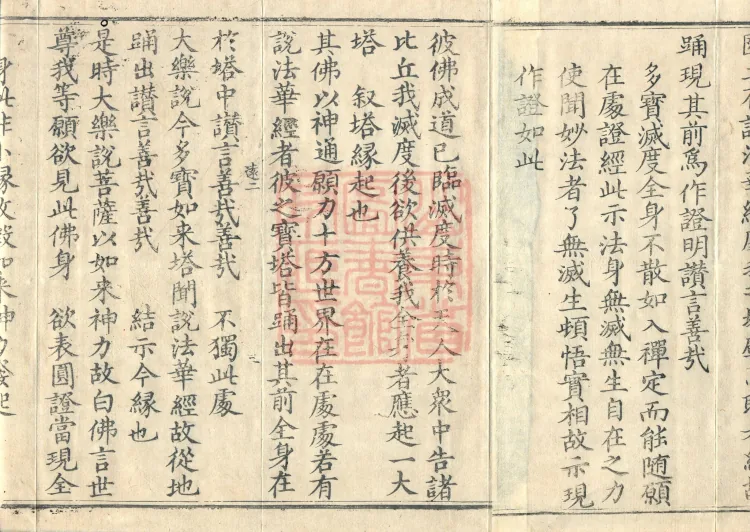 踊現其前爲作證明讃言善㢤
多寳滅度全身不散如入禪定而能隨願
在處證經此示法身無滅無生自在之力
使聞妙法者了無滅生頓悟實相故示現
作證如此
彼佛成道已臨滅度時於天人大衆中告諸
比丘我滅度後欲供養我全身者應起一大
塔 叙塔縁起也
其佛以神通願力十方世界在在處處若有
說法華經者彼之寳塔皆踊出其前全身在
於塔中讃言善㢤善㢤 不獨此處
大樂說今多寳如来塔聞說法華經故從地
踊出讃言善㢤善㢤 結示今縁也
是時大樂說菩薩以如来神力故白佛言世
尊我等願欲見此佛身 欲表圓證當現全